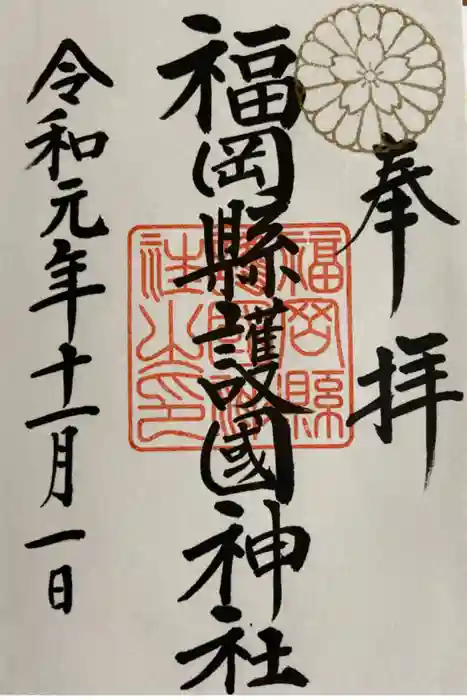 奉拝
福岡縣護國神社
福岡縣
令和元年十一月一日